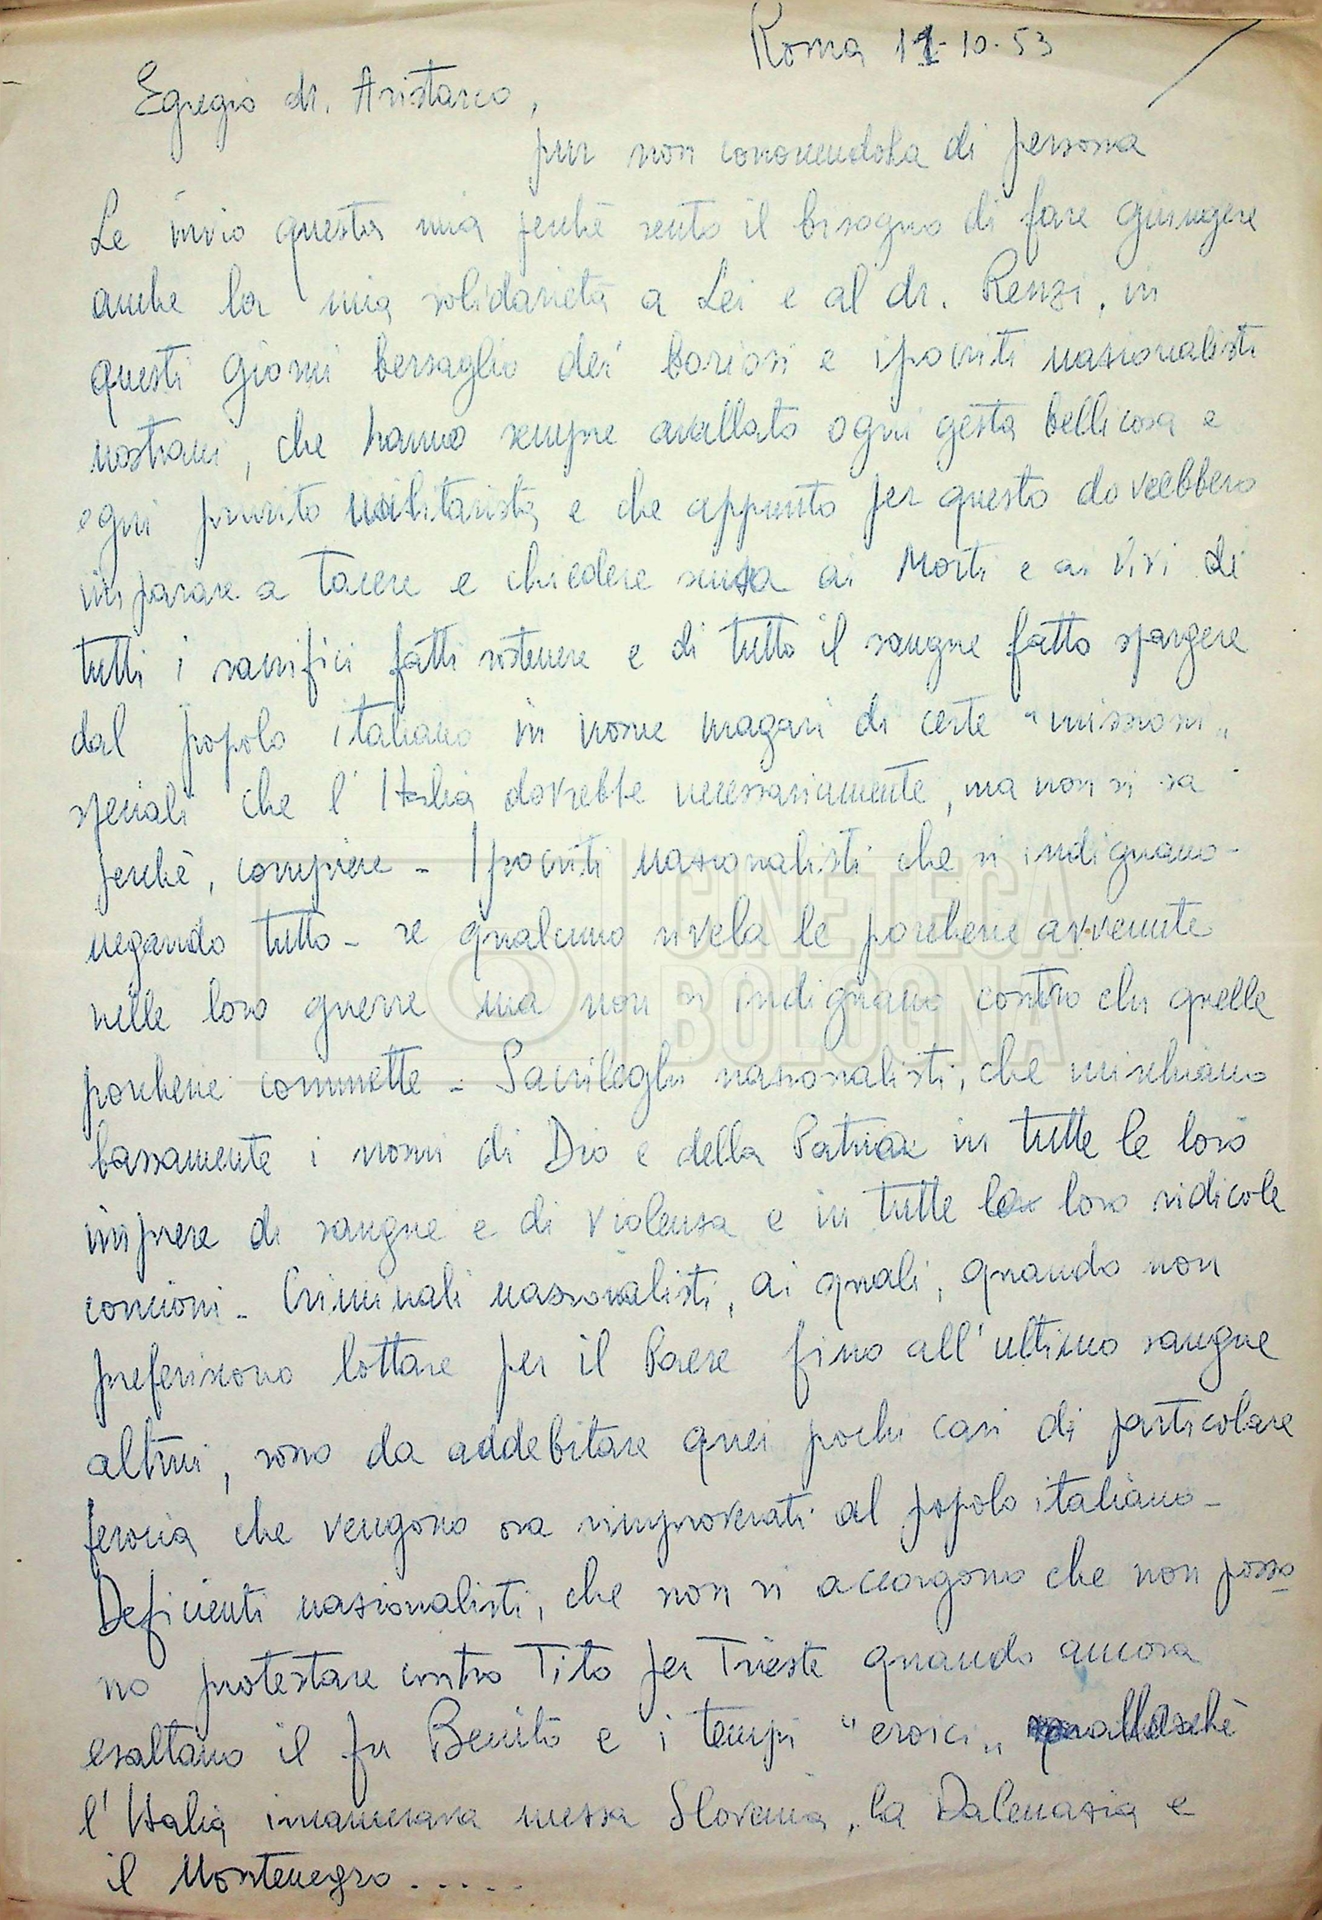 Roma 11-10-53
Egregio dr. Aristarco,
pur non conoscendola di persona
Le invio questa mia perchè sento il bisogno di fare giungere
anche la mia solidarietà a Lei e al dr. Renzi, in
questi giorni bersaglio dei boriosi e ipocriti nazionalisti
nostrani, che hanno sempre avallato ogni gesta bellicosa e
ogni prurito militarista e che appunto per questo dovrebbero
imparare a tacere e chiedere scusa ai Morti e ai Vivi di
tutti i sacrifici fatti sostenere e di tutto il sangue fatto spargere
dal popolo italiano in nome magari di certe "missioni„
speciali che l'Italia dovrebbe necessariamente, ma non si sa
perchè, compiere - Ipocriti nazionalisti che si indignano -
negando tutto - se qualcuno rivela le porcherie avvenute
nelle loro guerre ma non si indignano contro chi quelle
porcherie commette - Sacrileghi nazionalisti, che mischiano
bassamente i nomi di Dio e della Patria in tutte le loro
imprese di sangue e di violenza e in tutte le loro ridicole
concioni - Criminali nazionalisti, ai quali, quando non
preferiscono lottare per il Paese fino all'ultimo sangue
altrui, sono da addebitare quei pochi casi di particolare
ferocia che vengono ora rimproverati al popolo italiano -
Deficienti nazionalisti, che non si accorgono che non posso
no protestare contro Tito per Trieste quando ancora
esaltano il fu Benito e i tempi "eroici„ allorchè
l'Italia incamerava mezza Slovenia, la Dalmazia e
il Montenegro.....
CINETECA
BOLOGNA